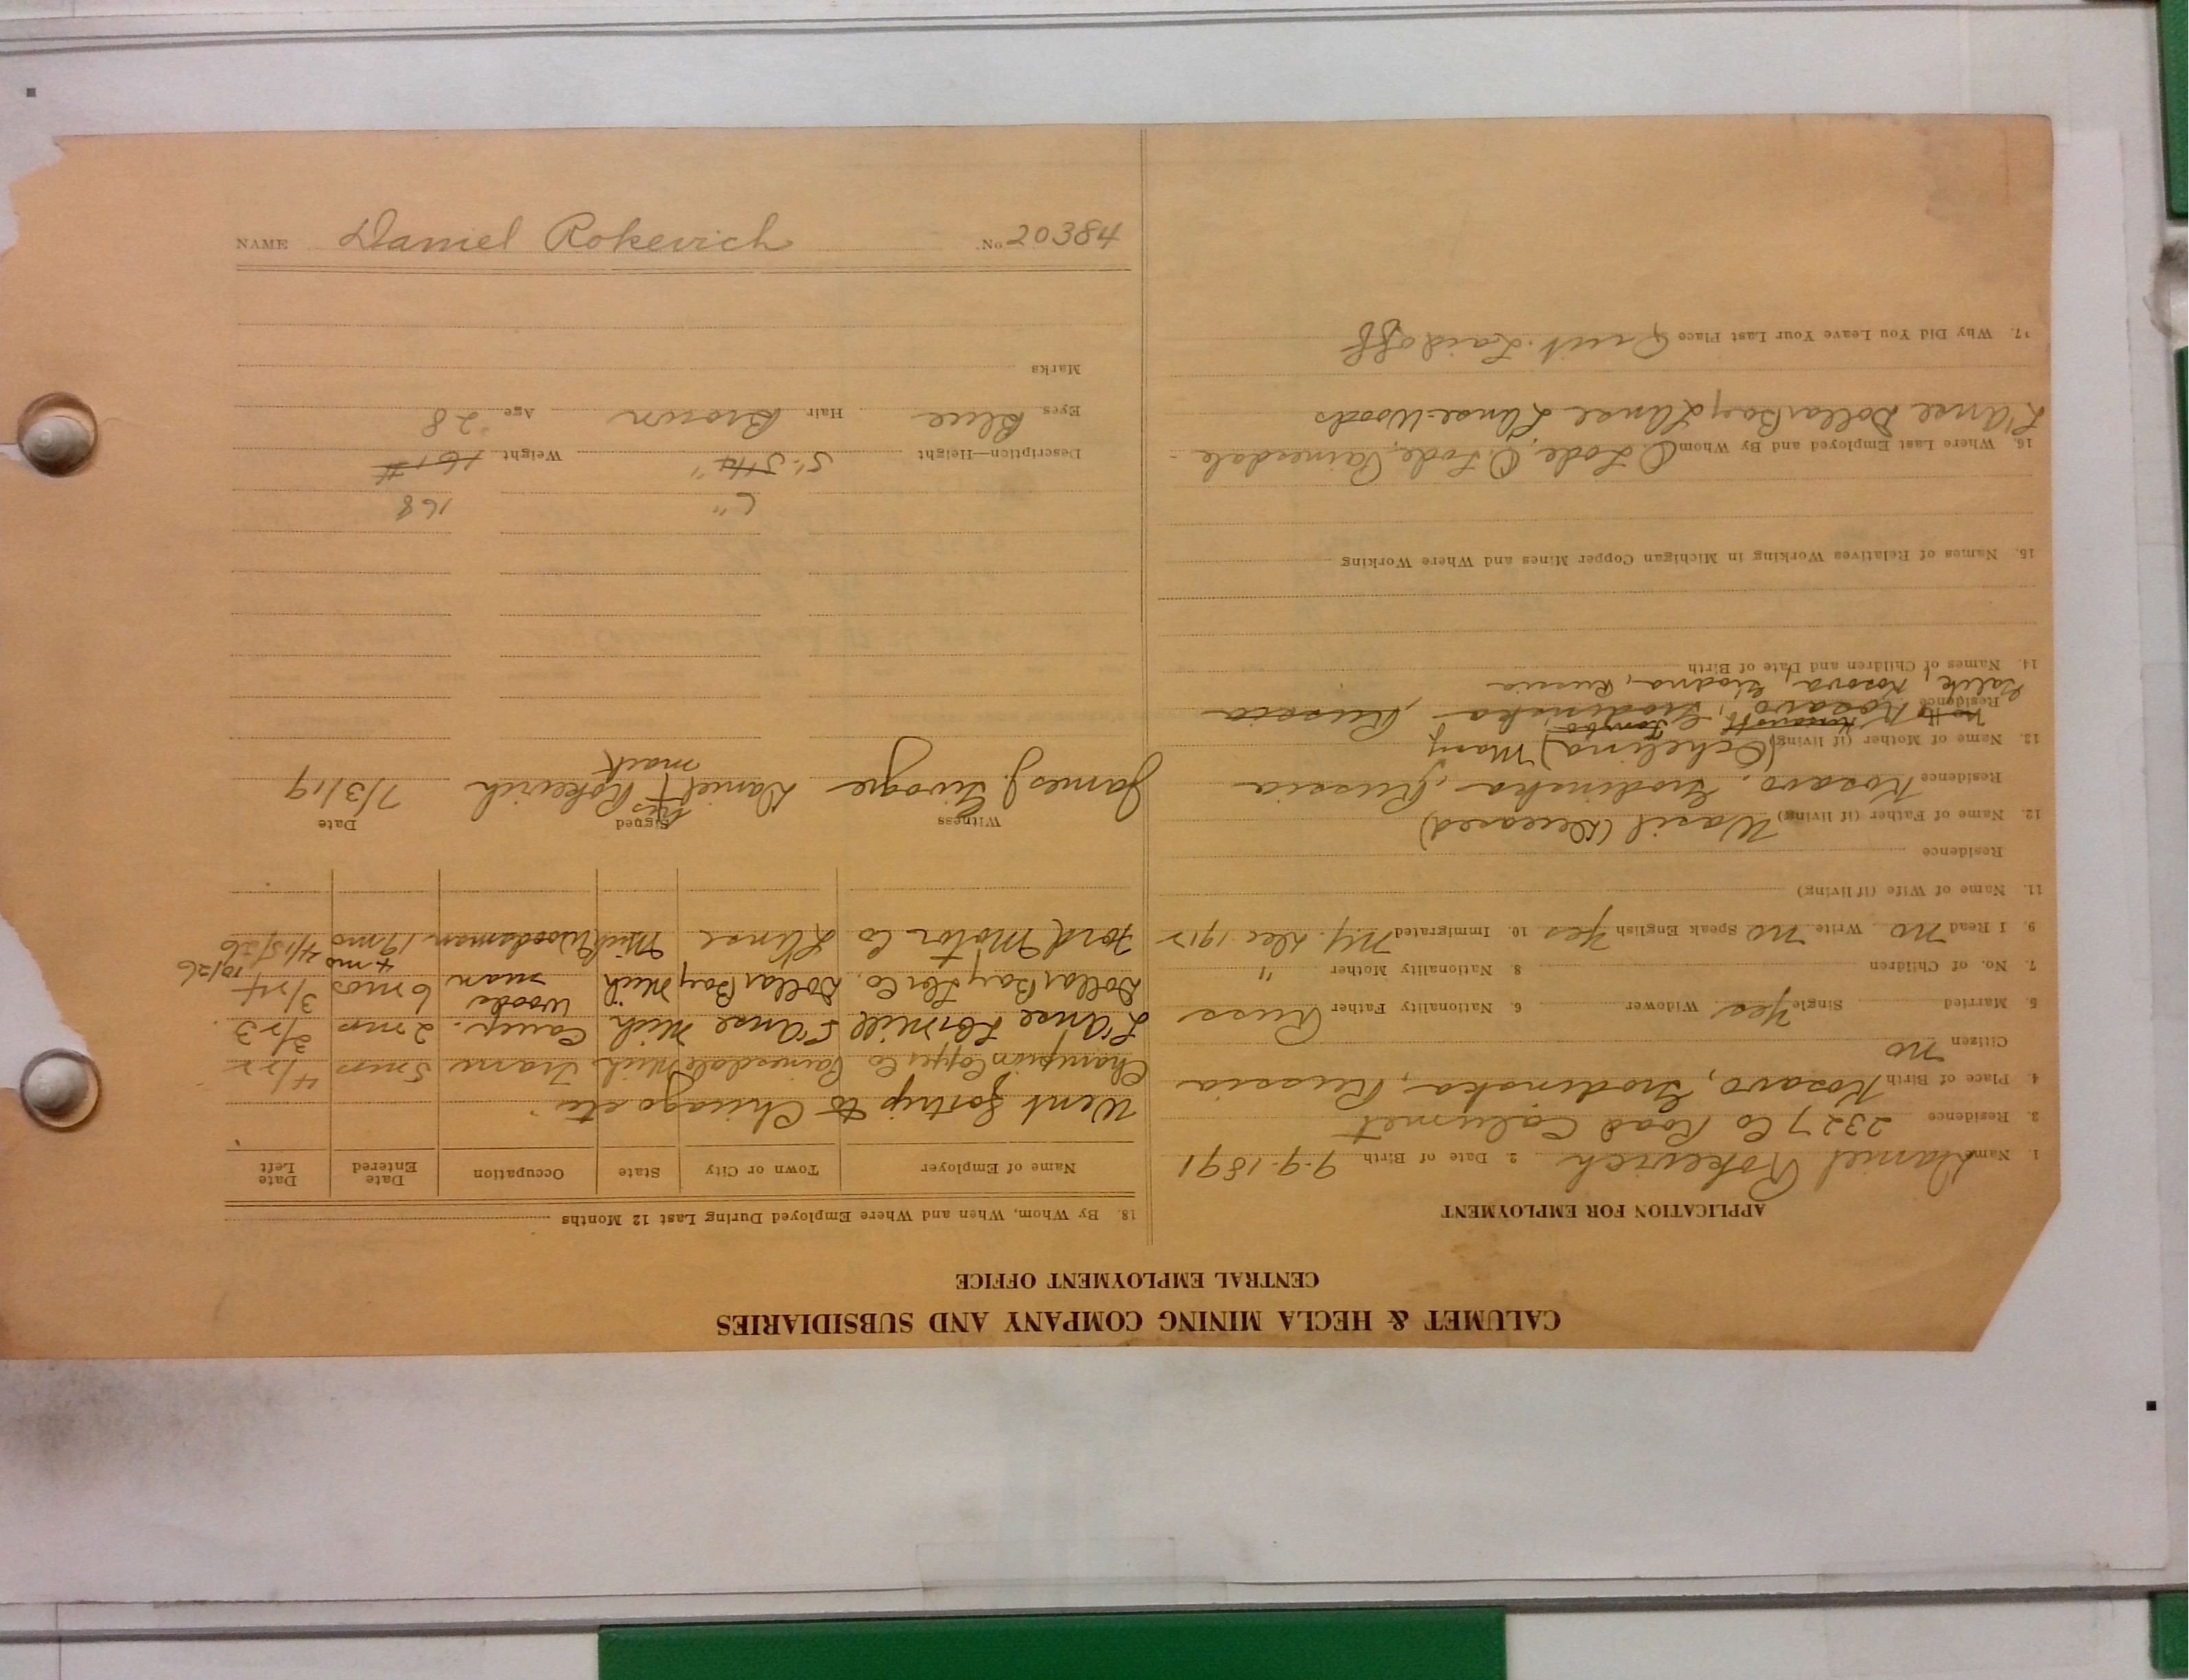 CALUMET & HECLA MINING COMPANY AND SUBSIDIARIES
CENTRAL EMPLOYMENT OFFICE
APPLICATION FOR EMPLOYMENT
1. Name Daniel Rokevich 2. Date of Birth 9-9-1891
3. Residence 2327 Co Road Calumet
4. Place of Birth Kosavo, Grodinska, Russia
Citizen no
5. Married Single Yes Widower 6. Nationality Father Russ
7. No. of Children 8. Nationality Mother "
9. I Read no Write no Speak English Yes 10. Immigrated N.Y. Dec 1912
11. Name of Wife (if living)
Residence
12. Name of Father (if living) Wasil (Deceased)
Residence Kosavo, Grodinska, Russia
13. Name of Mother (if living) (Ochelina) Mary
Residence Kosavo, Grodinska, Russia
Kosova, Grodna, Russia
14. Names of Children and Date of Birth
15. Names of Relatives Working in Michigan Copper Mines and Where Working
16. Where Last Employed and By Whom O. Lode, O. Lode, Painesdale-
L'Anse Dollar Bay L'Anse-Woods
17. Why Did You Leave Your Last Place Quit. Laid off
18. By Whom, When and Where Employed During Last 12 Months
Name of Employer Town or City State Occupation Date Entered Date Left
Went for trip to Chicago etc.
Champion Copper Co Painesdale Mich Tram 5 mos 4/22
L'Anse Lbr Mill L'Anse Mich Camp. 2 mos 3/23
Dollar Bay Lbr Co. Dollar Bay Mich Woods man 6 mos 3/24
4 mo 10/26
Ford Motor Co L'Anse Mich Woodsman 19 mo 4/15/26
Witness Signed Date
James J. Daniel his Rokevich 7/3/19
mark
6" 168
Description—Height 5'-5½" Weight 161#
Eyes Blue Hair Brown Age 28
Marks
NAME Daniel Rokevich No. 20384